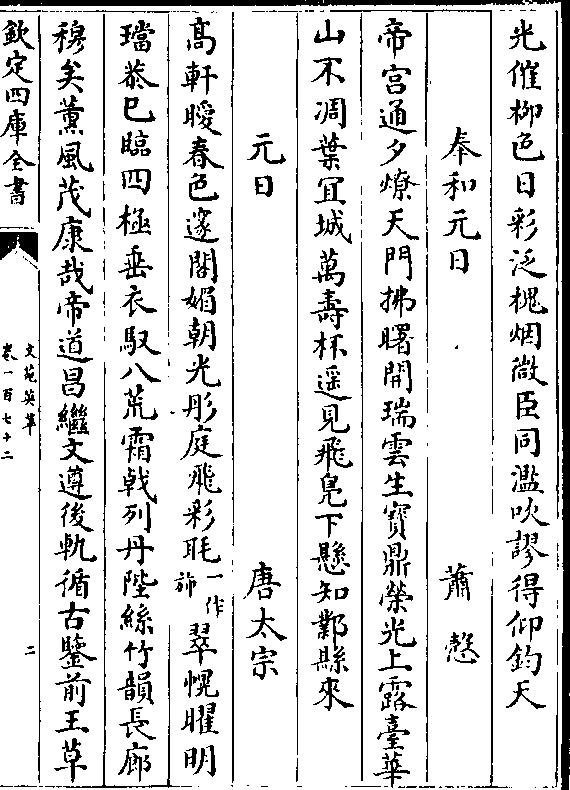 光催柳色日彩泛槐烟微臣同濫吹謬得仰鈞天
奉和元日　蕭慤
帝宮通夕燎天門拂曙開瑞雲生寶鼎榮光上露臺華
山不凋葉宜城萬壽杯遥見飛鳬下懸知鄴縣來
元日　唐太宗
髙軒曖春色邃閣媚朝光彤庭飛彩眊一作旆翠幌曜明
璫恭已臨四極垂衣馭八荒霜戟列丹陛絲竹韻長廊
穆矣薰風茂康哉帝道昌繼文遵後軌循古鑒前王草
欽定四庫全書
文苑英華
卷一百七十二
二